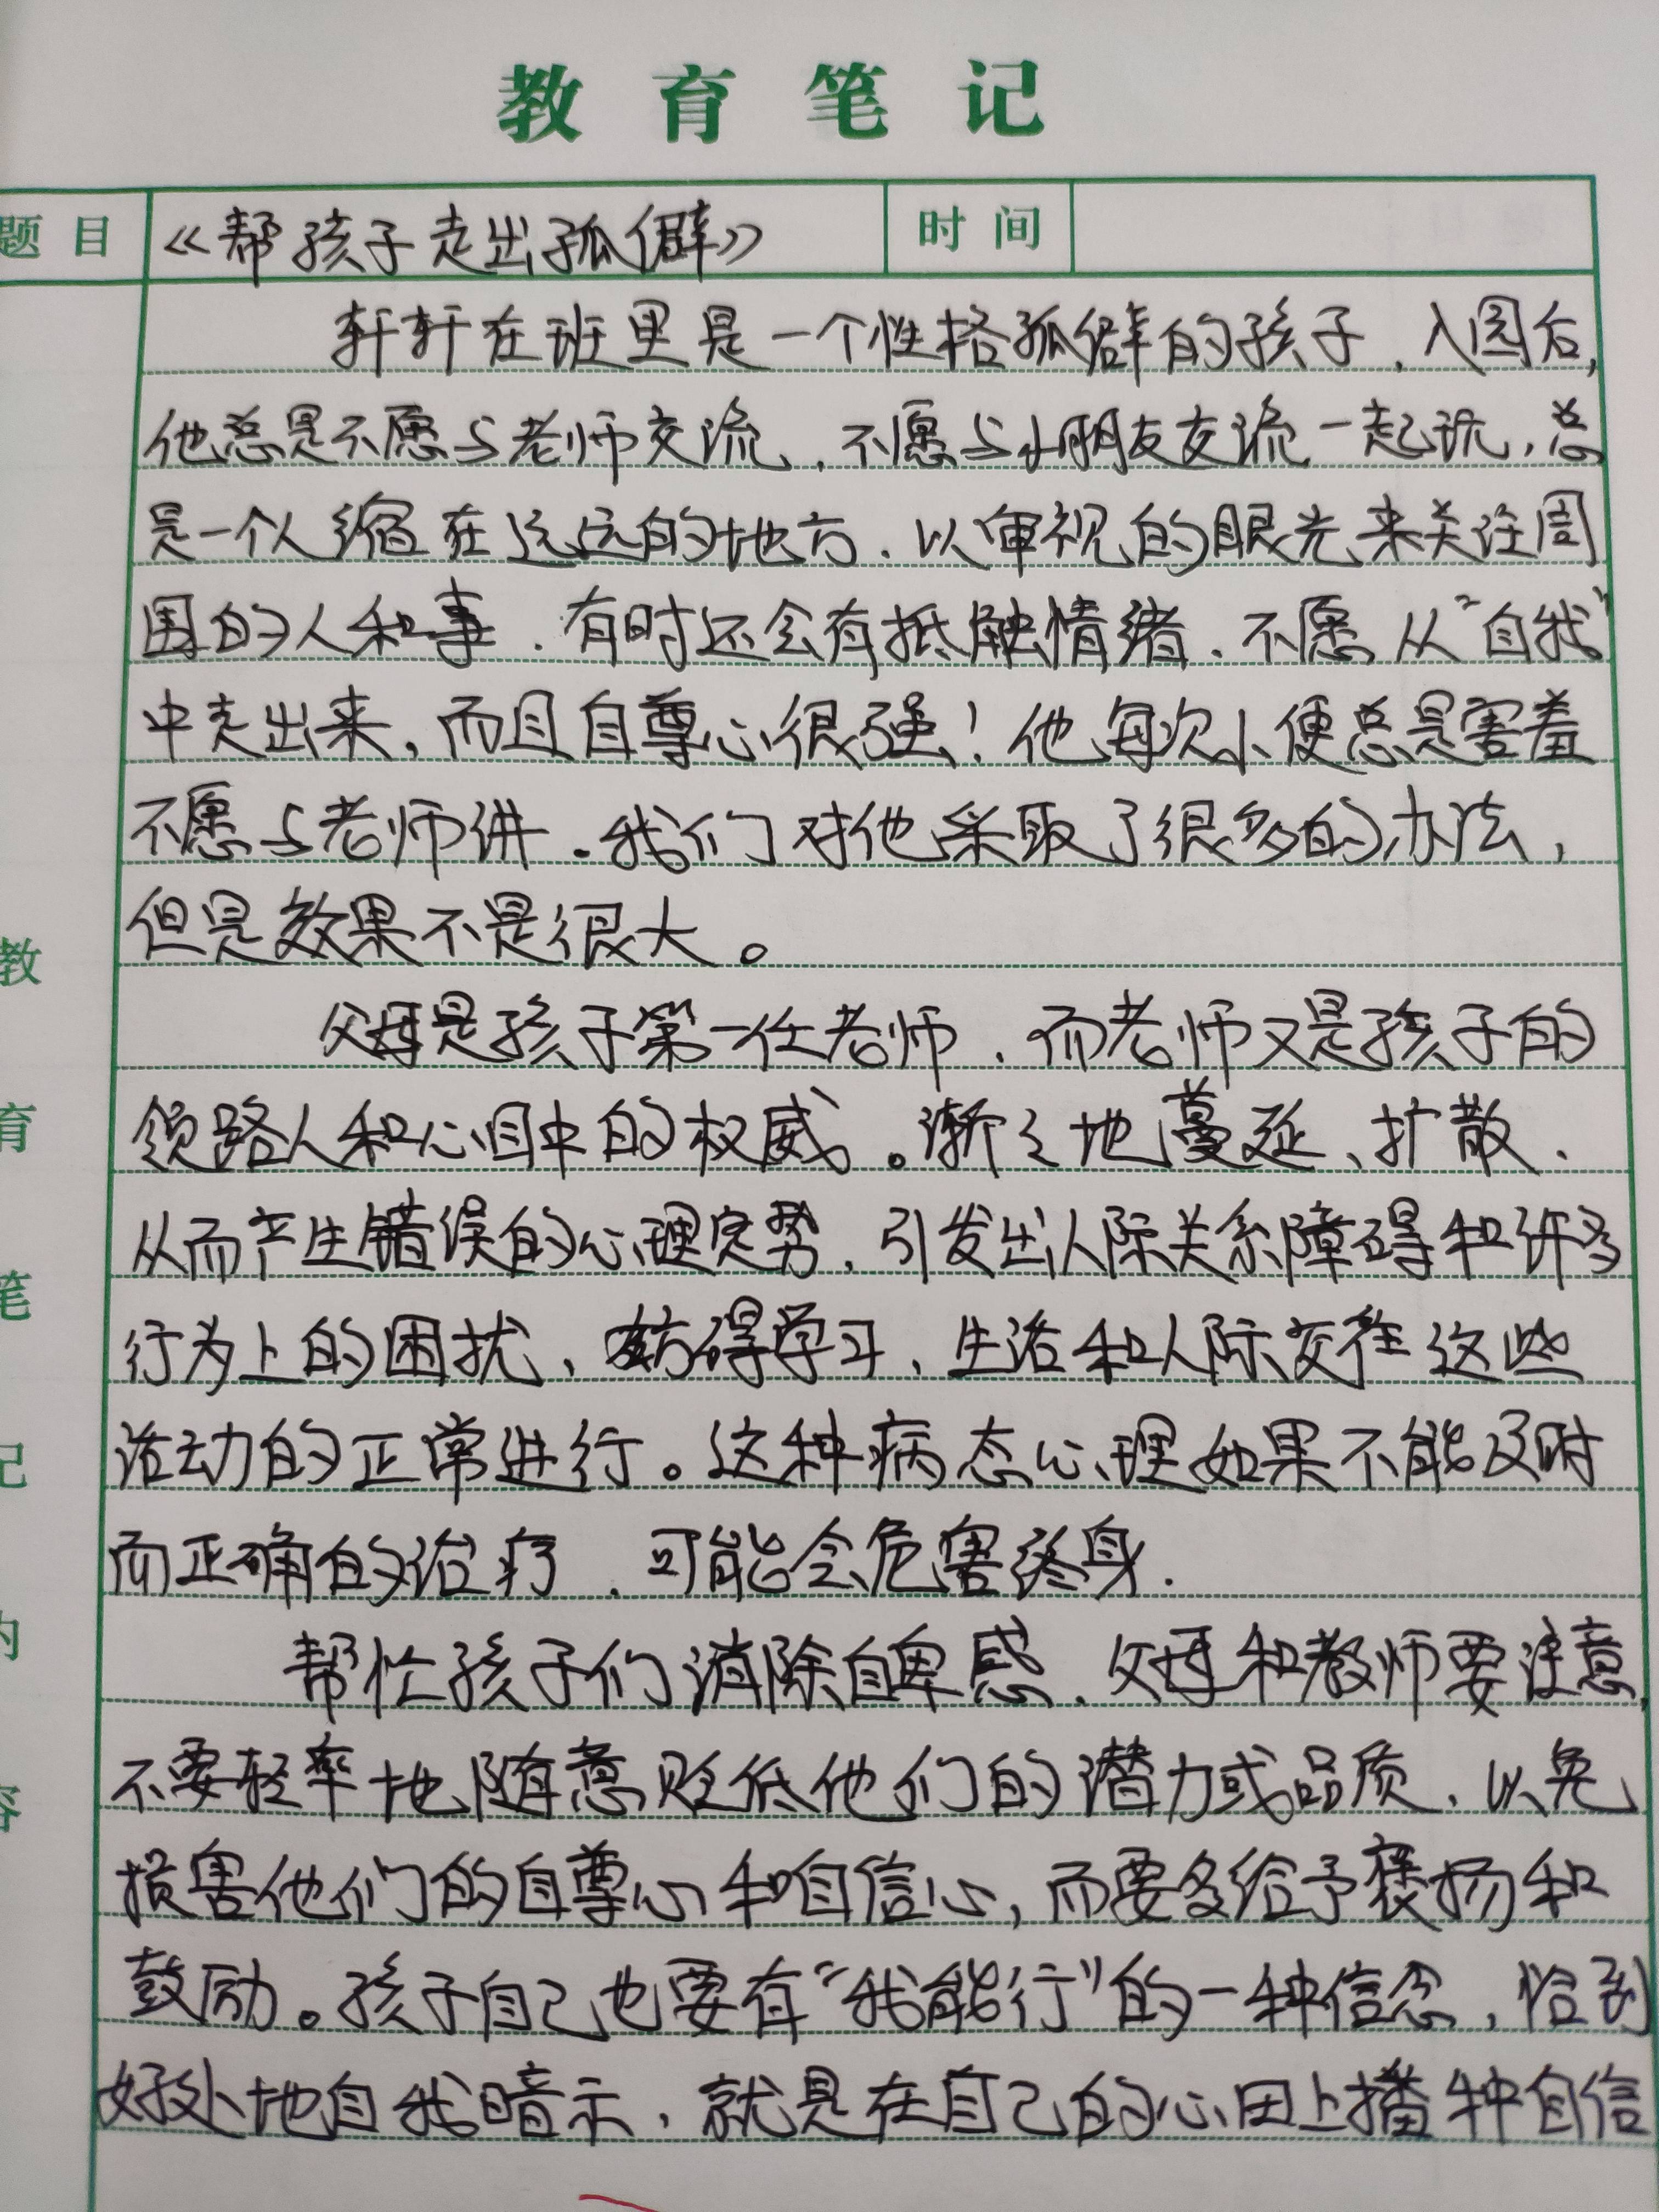 教育笔记
题目 《帮孩子走出孤僻》 时间
轩轩在班里是一个性格孤僻的孩子，入园后，
他总是不愿与老师交流，不愿与小朋友交流一起玩，总
是一个人缩在远远的地方，以审视的眼光来关注周
围的人和事，有时还会有抵触情绪，不愿从“自我”
中走出来，而且自尊心很强！他每次小便总是害羞
不愿与老师讲。我们对他采取了很多的办法，
但是效果不是很大。
父母是孩子第一任老师，而老师又是孩子的
领路人和心目中的权威。渐渐地蔓延、扩散、
从而产生错误的心理定势，引发出人际关系障碍和许多
行为上的困扰，妨碍学习，生活和人际交往这些
活动的正常进行。这种病态心理如果不能及时
而正确的治疗，可能会危害终身.
帮忙孩子们消除自卑感，父母和教师要注意，
不要轻率地随意贬低他们的潜力或品质，以免
损害他们的自尊心和自信心，而要多给予褒扬和
鼓励。孩子自己也要有“我能行”的一种信念，恰到
好处地自我暗示，就是在自己的心田上播种自信
教育笔记内容